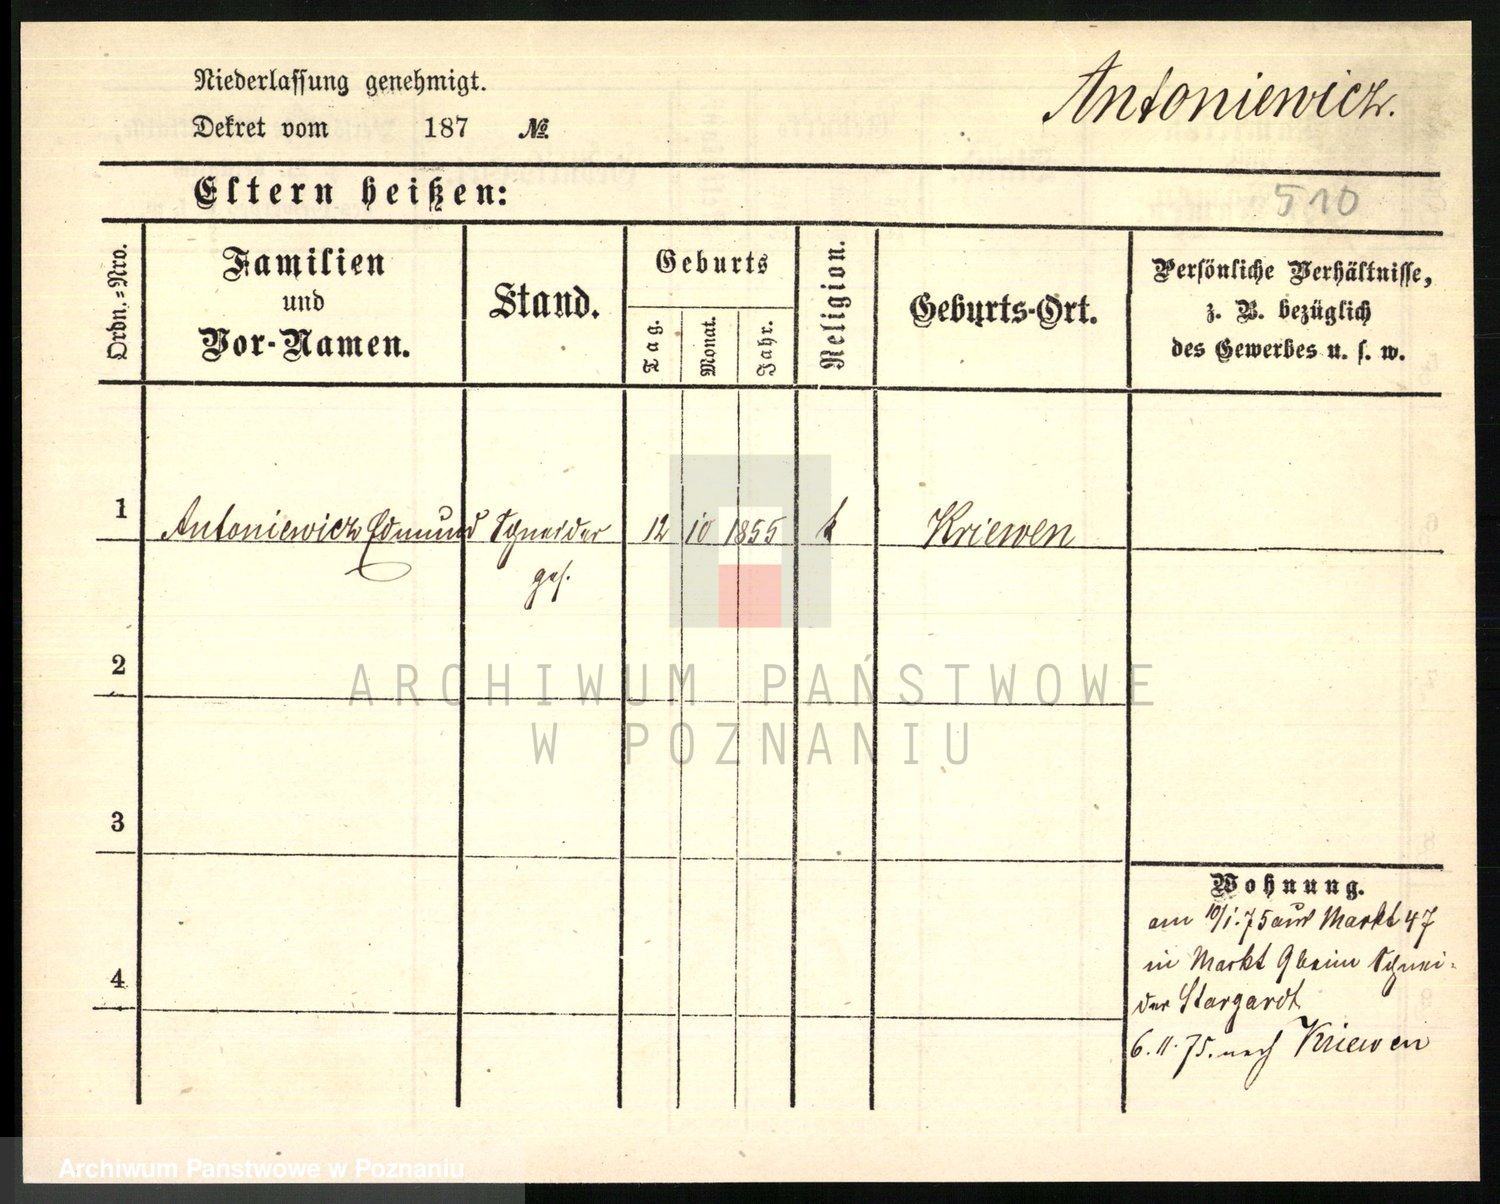 Niederlassung genehmigt.
Dekret vom 187 №
Antoniewicz.
Eltern heißen:
510
Ordn.-Nro.
Familien
und
Vor-Namen.
Stand.
Geburts
Tag.
Monat.
Jahr.
Religion.
Geburts-Ort.
Persönliche Verhältnisse,
z. B. bezüglich
des Gewerbes u. s. w.
1 Antoniewicz Edmund Schneider 12 10 1855 k Kriewen
ges.
2
3
4
Wohnung.
am 10/1.75 aus Markt 47
in Markt 9 beim Schnei-
der Stargardt
6.11.75. nach Kriewen
ARCHIWUM PAŃSTWOWE
W POZNANIU
Archiwum Panstwowe w Poznaniu